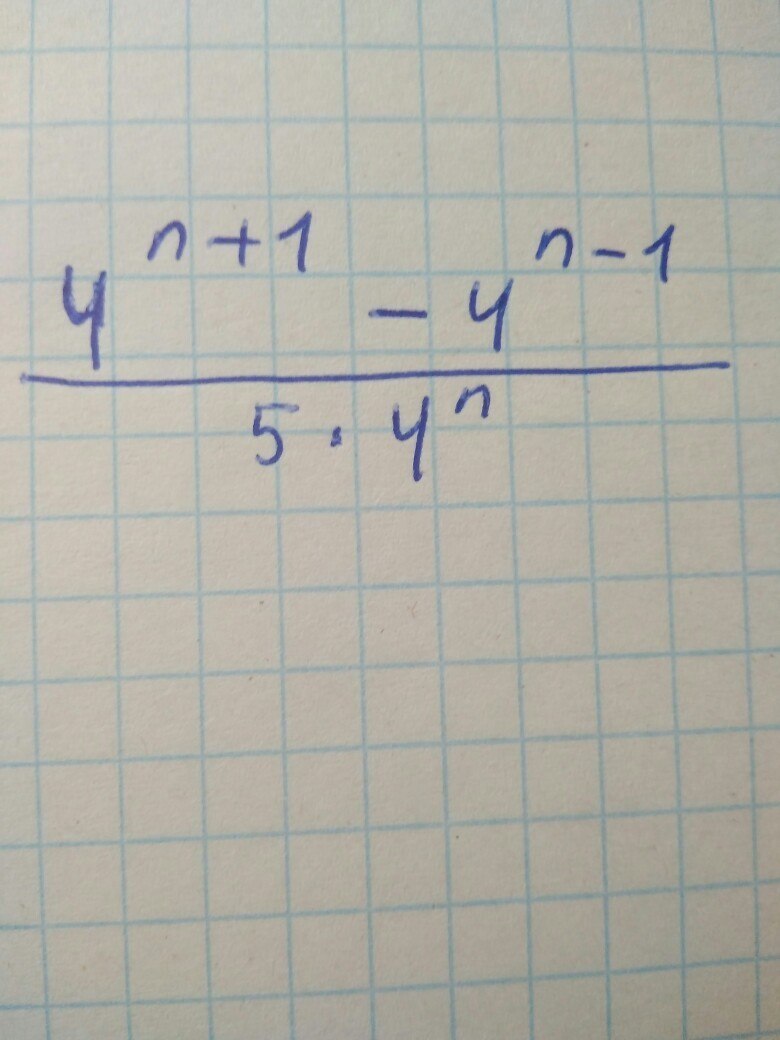 4^{n+1} - 4^{n-1}
5 · 4^n